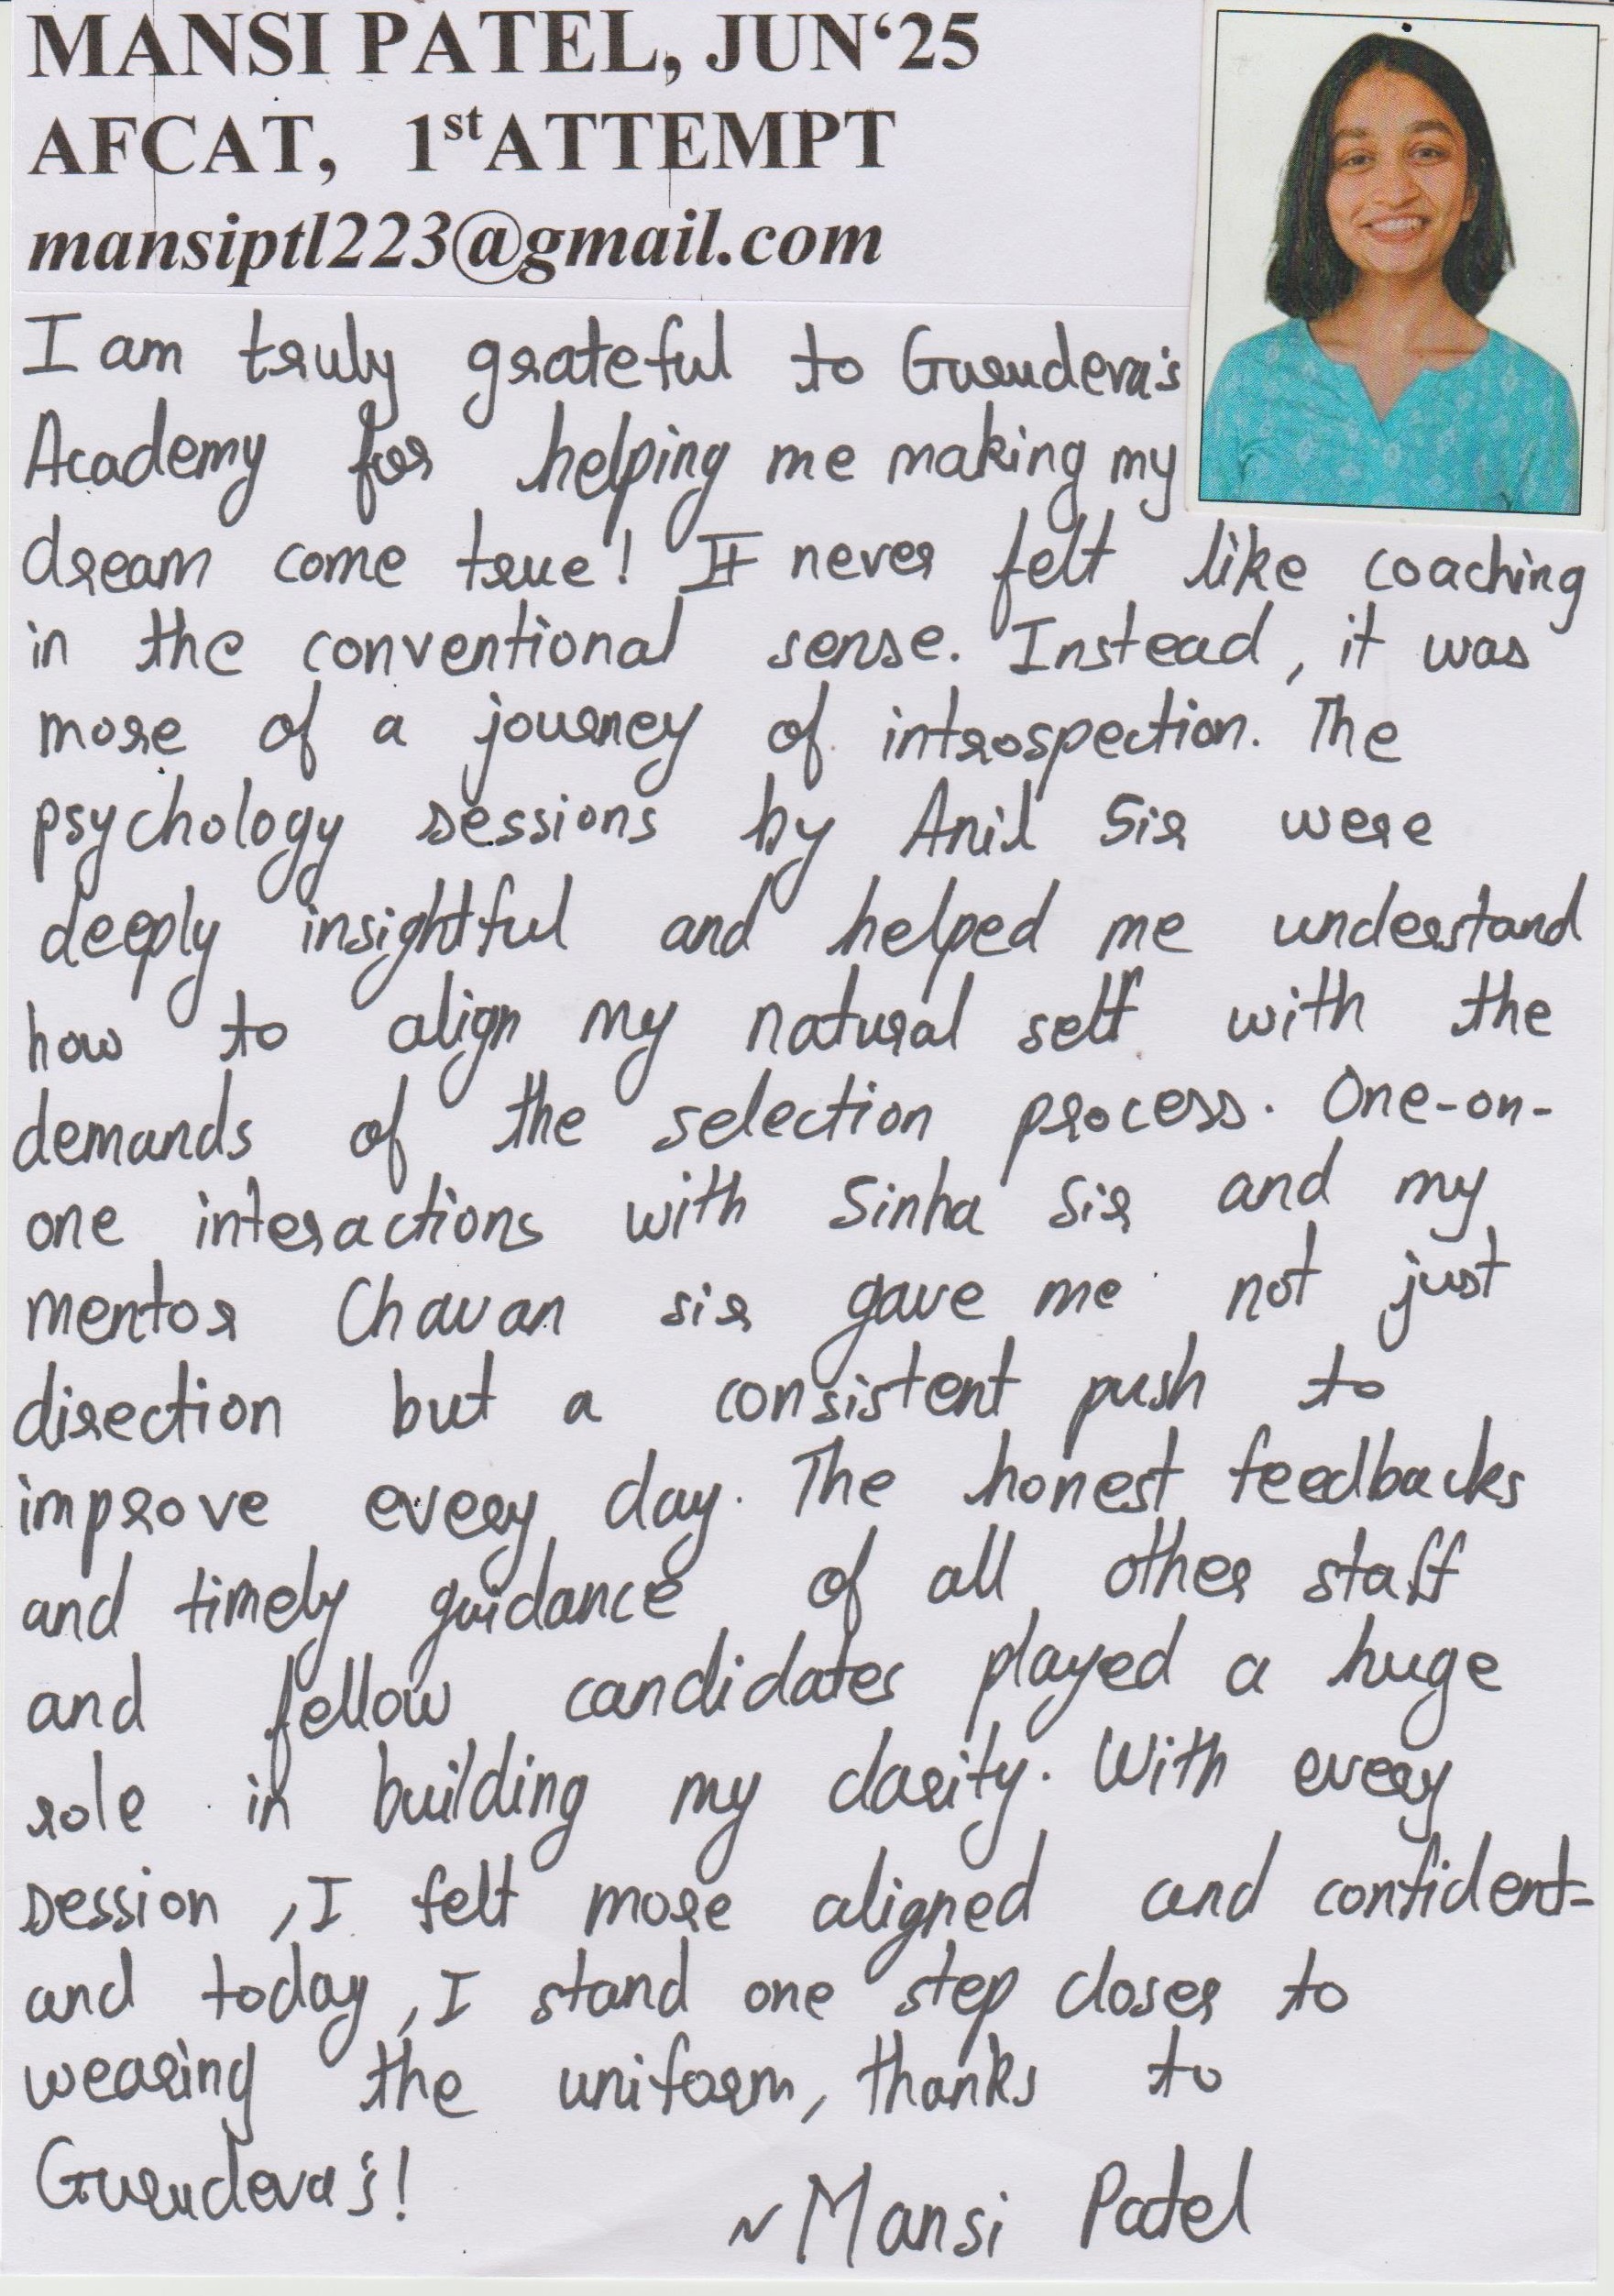 MANSI PATEL, JUN‘25
AFCAT, 1st ATTEMPT
mansiptl223@gmail.com
I am truly grateful to Gurudeva's
Academy for helping me making my
dream come true! It never felt like coaching
in the conventional sense. Instead, it was
more of a journey of introspection. The
psychology sessions by Anil Sir were
deeply insightful and helped me understand
how to align my natural self with the
demands of the selection process. One-on-
one interactions with Sinha Sir and my
mentor Chavan sir gave me not just
direction but a consistent push to
improve every day. The honest feedbacks
and timely guidance of all other staff
and fellow candidates played a huge
role in building my clarity. With every
session, I felt more aligned and confident-
and today, I stand one step closer to
wearing the uniform, thanks to
Gurudeva's!
~Mansi Patel